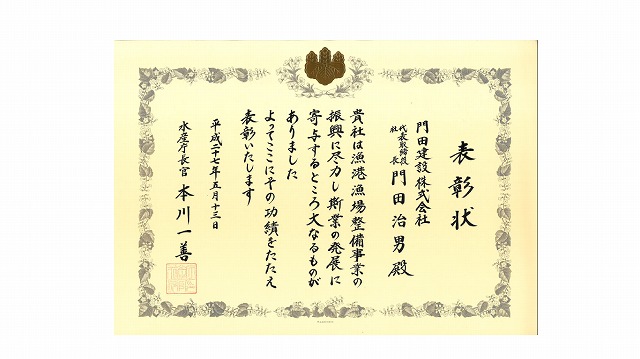 表彰状
門田建設株式会社
代表取締役
社長 門田治男殿
貴社は漁港漁場整備事業の
振興に尽力し斯業の発展に
寄与するところ大なるものが
ありました
よってここにその功績をたたえ
表彰いたします
平成二十七年五月十三日
水産庁長官 本川一善